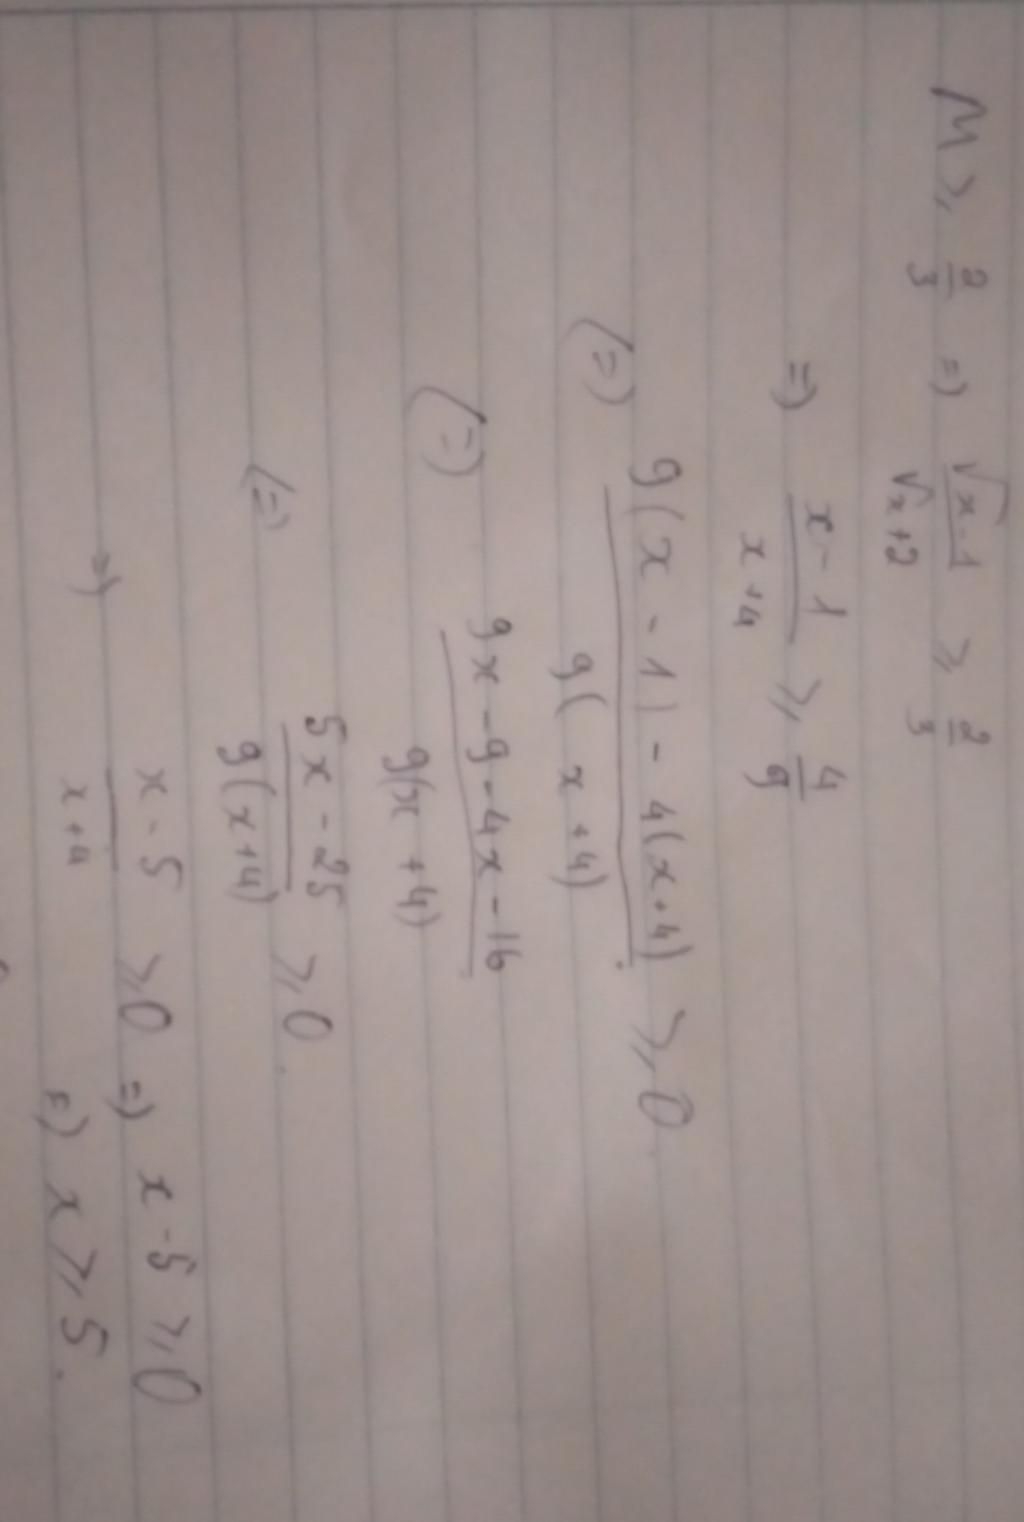 M ≥ 2/3 => √x-1/√x+2 ≥ 2/3
=> x-1/x+4 ≥ 4/9
(=) 9(x-1)-4(x+4)/9(x+4) ≥ 0
(=) 9x-9-4x-16/9(x+4)
(=) 5x-25/9(x+4) ≥ 0
=> x-5/x+4 ≥ 0 => x-5 ≥ 0
=> x ≥ 5.